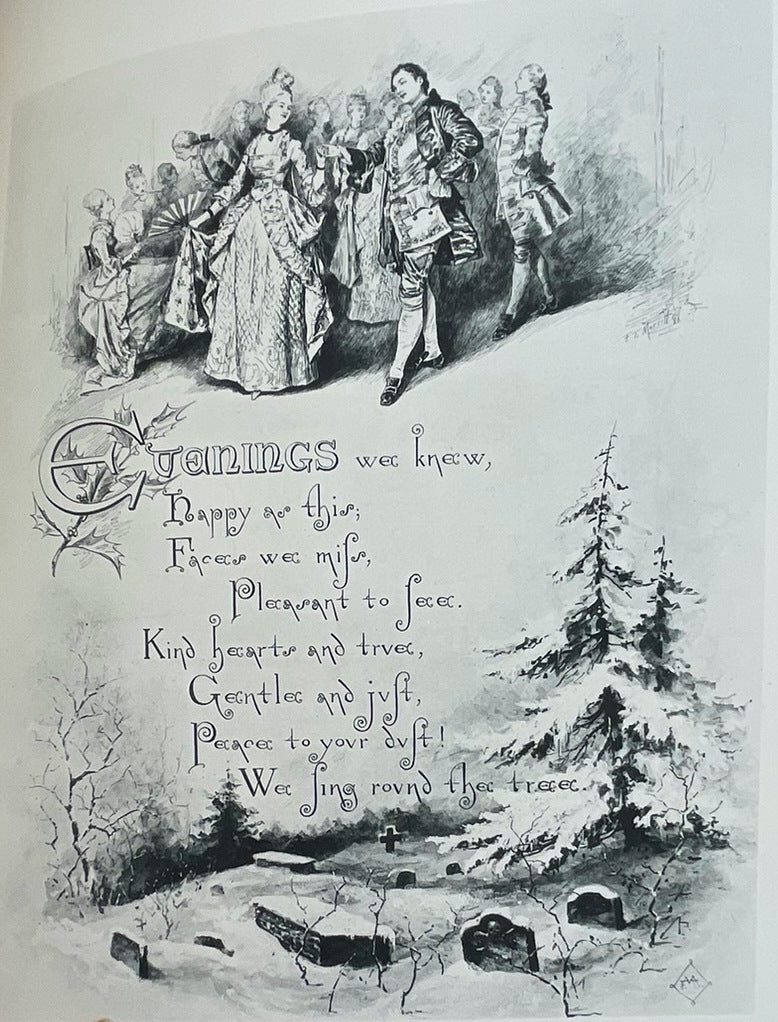 EVENINGS we knew,
Happy as this;
Faces we miſs,
Pleasant to ſee.
Kind hearts and trve,
Gentle and jvſt,
Peace to yovr dvſt!
We ſing rovnd the tree.